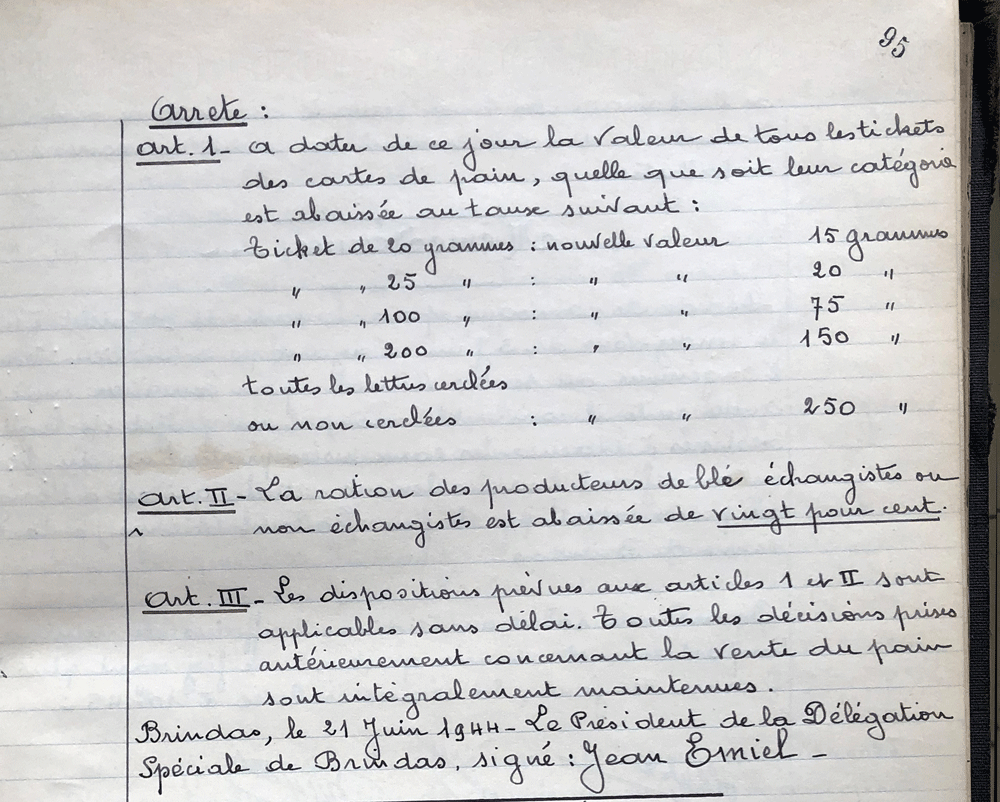 95
Arrete :
Art. 1 - A dater de ce jour la valeur de tous les tickets
des cartes de pain, quelle que soit leur catégorie
est abaissée au taux suivant :
Ticket de 20 grammes : nouvelle valeur 15 grammes
" " 25 " : " " 20 "
" " 100 " : " " 75 "
" " 200 " : " " 150 "
toutes les lettres cerclées
ou non cerclées : " " 250 "
Art. II - La ration des producteurs de blé échangistes ou
non échangistes est abaissée de vingt pour cent.
Art. III - Les dispositions prévues aux articles 1 et II sont
applicables sans délai. Toutes les décisions prises
antérieurement concernant la vente du pain
sont intégralement maintenues.
Brindas, le 21 Juin 1944 - Le Président de la Délégation
Spéciale de Brindas, signé : Jean Emiel -